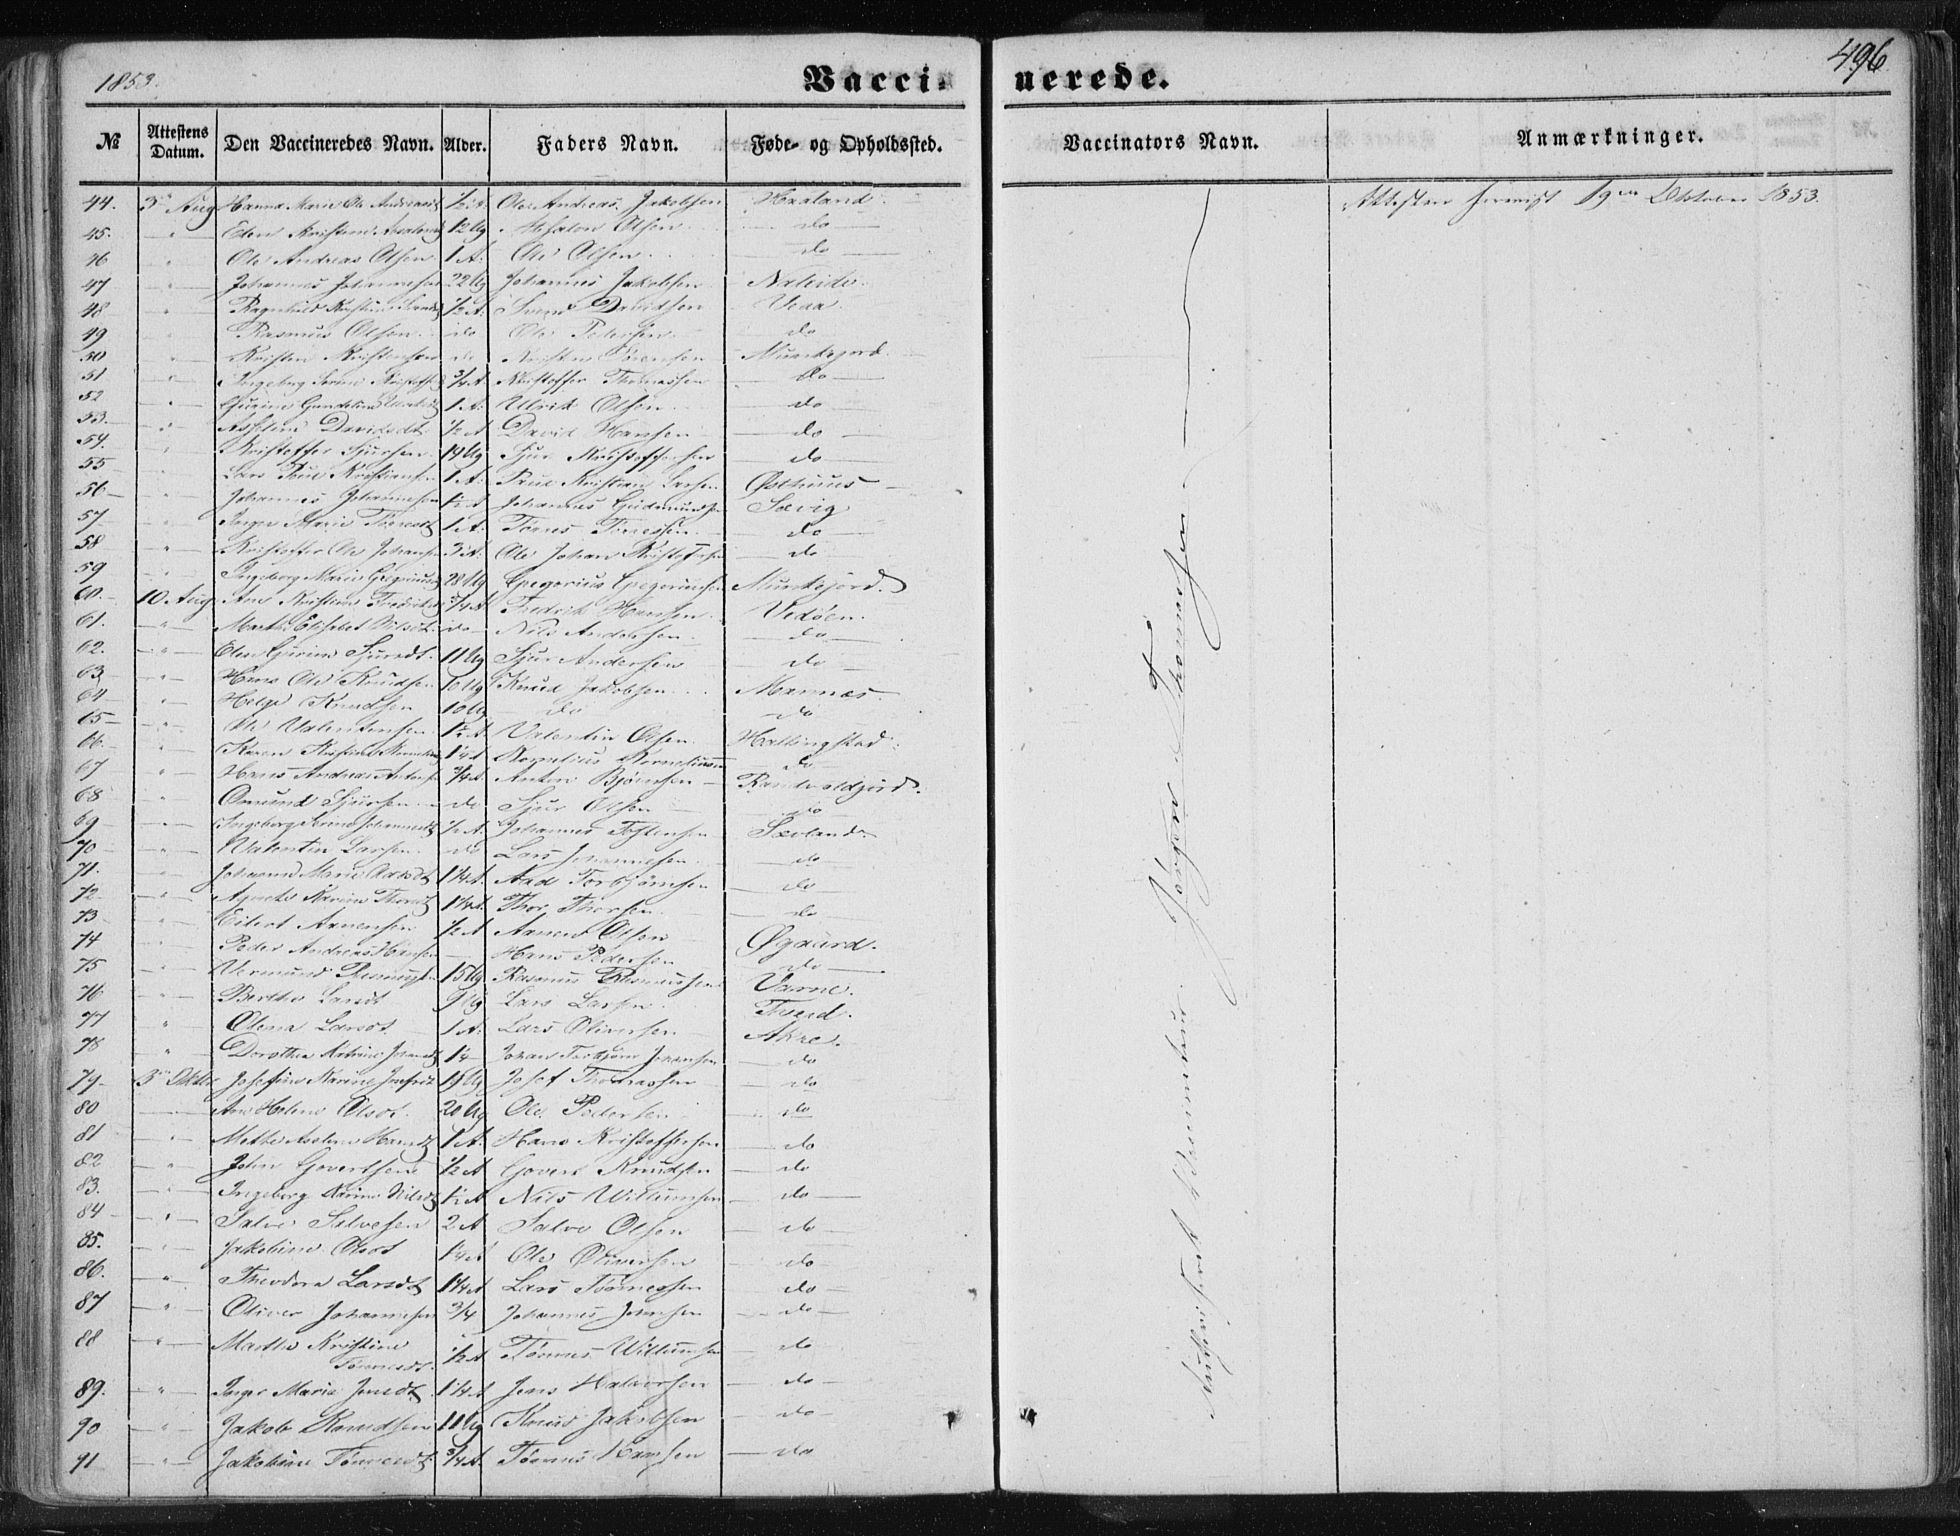 1853.
Vaccinerede.
496
№ Attestens Datum. Den Vaccineredes Navn. Alder. Faders Navn. Føde- og Opholdssted. Vaccinators Navn. Anmærkninger.
44. 3 Aug Hanna Marie Ole Andreasd ½ A. Ole Andreas Jakobsen Haaland. Attesten 19 Oktober 1853.
45. " Elen Kristine 12 Ug Absalon Olsen do
46 " Ole Andreas Olsen 1 A. Ole Olsen do
47 " Johannes Johannesen 22 Ug Johannes Jakobsen
48 " Ragnhild Kristine ½ A. Svend Davidsen Veaa
49 " Rasmus Olsen do Ole Pedersen do
50 " Kristen Kristensen do Kristen Sørensen Munkejord.
51 " Ingeborg Serine Kristoffsd ¾ A Kristoffer Thomassen do
52 " Gurine Gundeline 1 A. Ulrik Olsen do
53. " Asseline Davidsdt ½ A David Hansen do
54. " Kristoffer Sjursen 19 Ug Sjur Kristoffersen do
55 " Lars Poul Kristiansen 1 A. Paul Kristian Larsen Østhuus
56 " Johannes Johannesen Johannes Gudmundsen Sævig
57 " Inger Marie Tønnesdt 1 A. Tønnes Tønnesen do
58 " Kristoffer Ole Johansen Ole Johan Kristoffersen do
59 " Ingeborg Marie Gregoriusd 28 Ug Gregorius Gregoriussen Munkejord.
60. 10 Aug Ane Kristine Fredriksd ¾ A Fredrik Hansen Vedøen.
61. " Marthe Elisabet Nilsdt. do Nils Andersen do
62. " Elen Gurine Sjursdt. 11 Ug Sjur Andersen do
63 " Hans Ole Knudsen 10 Ug Knud Jakobsen Mannæs.
64 " Helge Knudsen 10 Ug do do
65 " Ole Valentinsen Valentin Olsen Hallingstad.
66 " Karen Kristine Kornelius Korneliussen do
67 " Hans Andreas Antonsen ¾ A Anton Bjørnsen
68 " Omund Sjursen do Sjur Olsen do
69 " Ingeborg Serine Johannesdt ½ A. Johannes Sævland.
70 " Valentin Larsen do Lars Johannesen do
71. " Johanne Marie Aadsdt 1¼ A. Aad Torbjørnsen do
72 " Agnete Karine Thorsdt 1¼ A. Thor Thorsen do
73 " Eilert Aanensen ½ A Aanen Olsen Øgaard.
74 " Peder Andreas Hansen Hans Pedersen do
75 " Vermund Rasmussen 15 Ug Rasmus Rasmussen Varne.
76 " Berthe Larsdt 9 Ug Lars Larsen
77 " Olena Larsdt 1 A. Lars Oliversen Akre.
78 " Dorothea Katrine Johansdt Johan Torbjørn Johansen do
79 3 Oktbr Josefine Karine Josefsdt 19 Ug Josef Thomassen do
80 " Ane Helene Olsdt. 20 Ug Ole Pedersen do
81 " Mette Asseline Hansdt 1 A. Hans Kristoffersen do
82 " John Govertsen ½ A Govert Knudsen do
83. " Ingeborg Karine Nilsdt Nils Willumsen do
84 " Salve Salvesen 2 A Salve Olsen do
85. " Jakobine Olsdt Ole Oliversen do
86. " Theodora Larsdt 1¼ A Lars Tønnessen do
87 " Oliver Johannesen ¾ Johannes Johnsen do
88 " Marthe Kristine Tønnesdt. ½ A Tønnes Willumsen do
89. " Inger Marie Jensdt. 1¼ A Jens Halvorsen do
90 " Jakob Knudsen 11 Ug Knud Jakobsen do
91 " Jakobine Tønnesdt ¾ A. Tønnes Hansen do
Authoriseret Vaccinateur Jörgen Thomassen